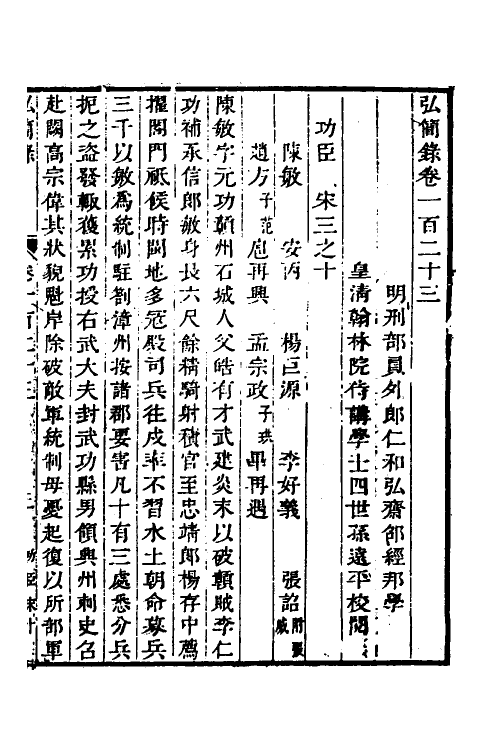 弘簡錄卷一百二十三
明刑部員外郎仁和弘齋邵經邦學
皇清翰林院侍講學士四世孫遠平校閱
功臣 宋三之十
陳敏 安丙 楊巨源 李好義 張詔 附張威
趙方 子范 扈再興 孟宗政 子珙 畢再遇
陳敏字元功贛州石城人父皓有才武建炎末以破贛賊李仁
功補承信郎敏身長六尺餘精騎射積官至忠靖郎楊存中薦
擢閤門祗候時閩地多寇殿司兵往戍率不習水土朝命募兵
三千以敏爲統制駐劄漳州按諸郡要害凡十有三處悉分兵
扼之盜發輒獲累功授右武大夫封武功縣男領興州刺史召
赴闕高宗偉其狀貌魁岸除破敵軍統制母憂起復以所部軍
弘簡錄